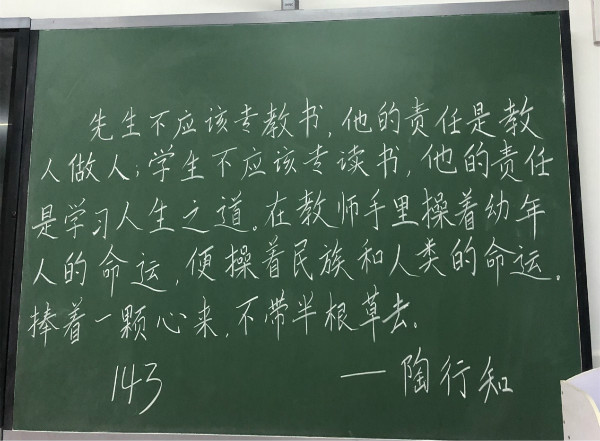 先生不应该专教书,他的责任是教
人做人;学生不应该专读书,他的责任
是学习人生之道。在教师手里操着幼年
人的命运,便操着民族和人类的命运。
捧着一颗心来,不带半根草去。
143 —陶行知